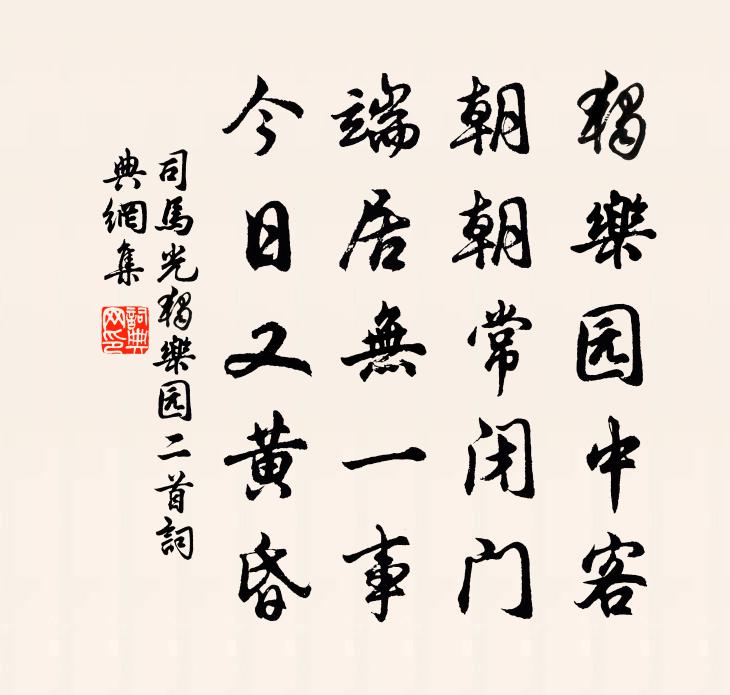 独樂园中客
朝朝常闭门
端居無一事
今日又黄昏
司馬光独樂园二首詞
典網集
詞典
网印